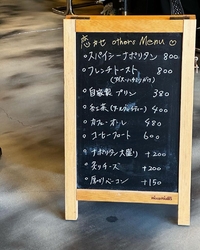 others Menu ♡
・スパイシーナポリタン 800
・フレンチトースト 800
・自家製 プリン 380
・紅茶 400
・カフェ・オ・レ 480
・コーヒーフロート 600
・ナポリタン大盛り +200
・炙りチーズ +200
・厚切りベーコン +150